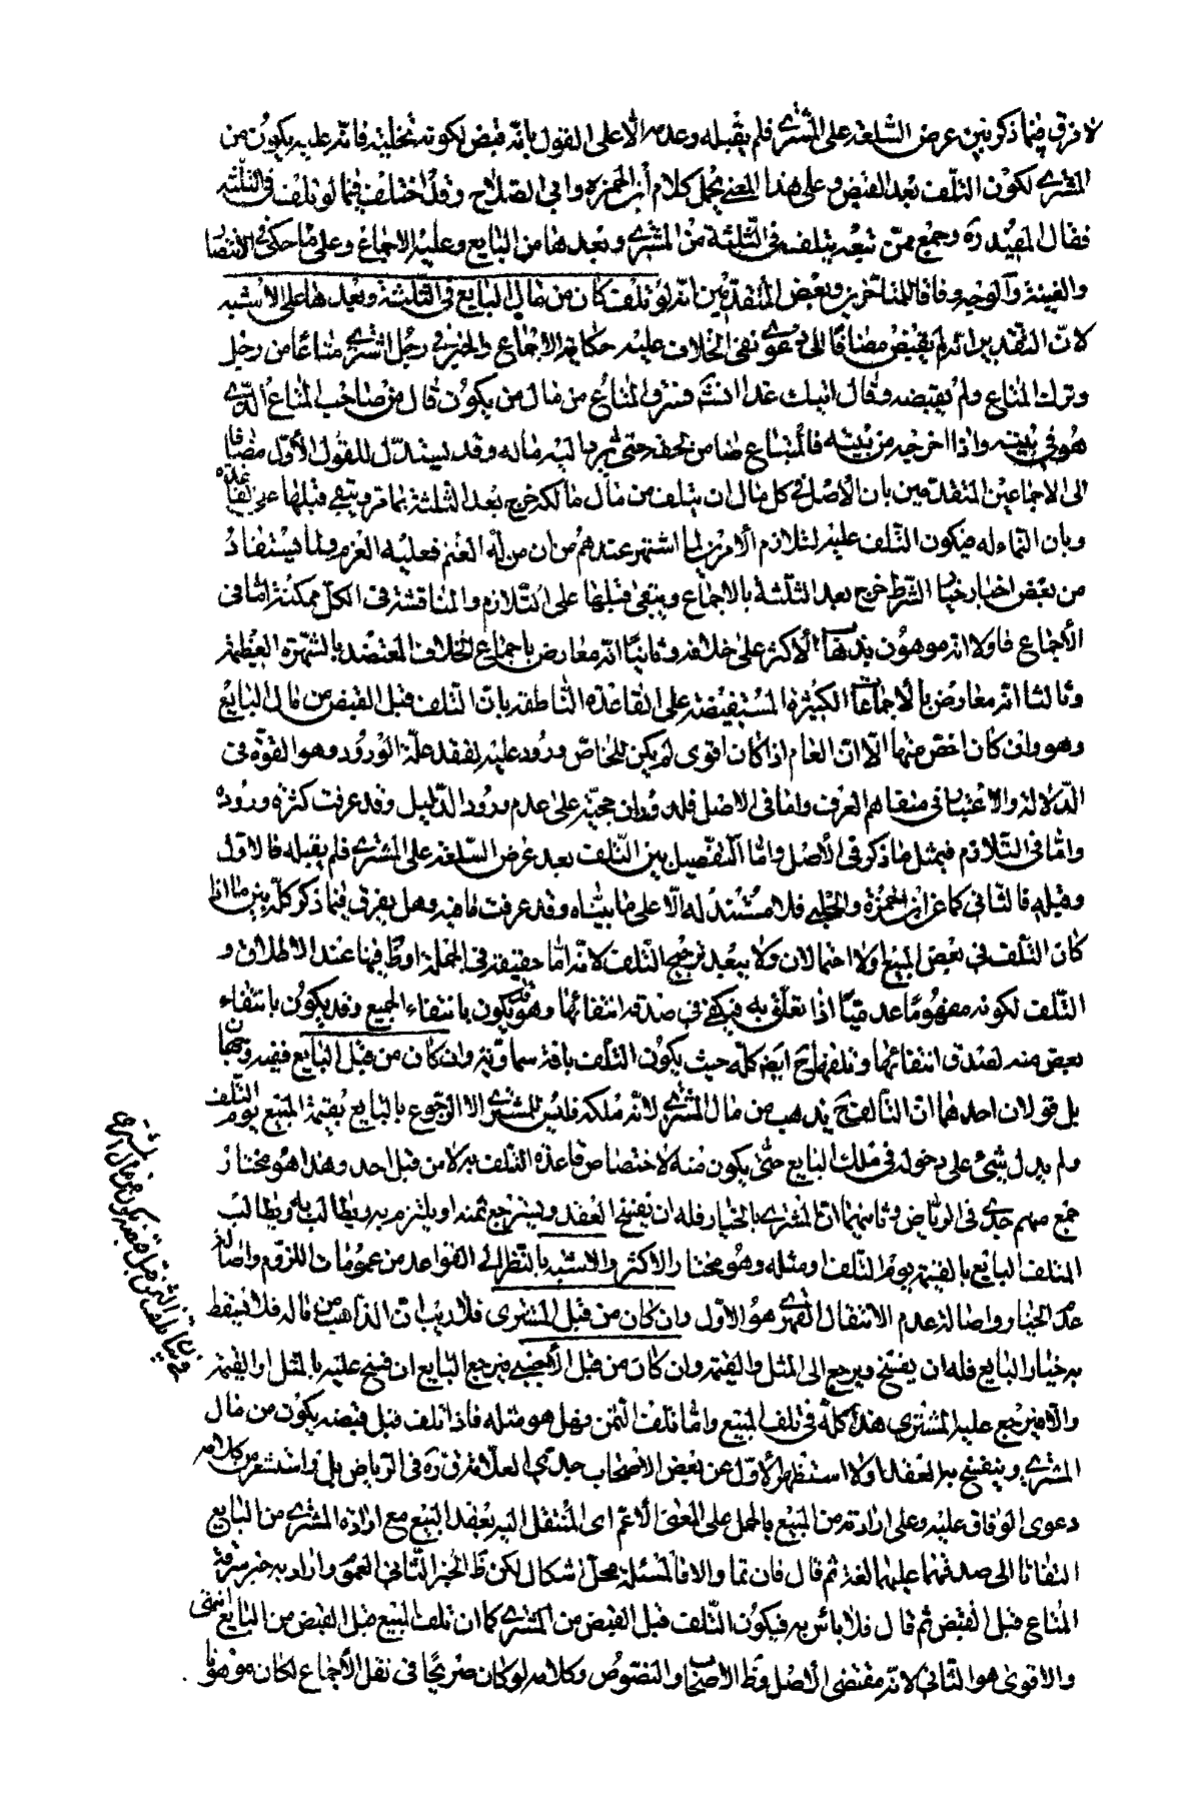 لا فرق فيما ذكر بين عرض السلعة على المشتري فلم يقبله وعدمه الا على القول بانه قبض لكونه تخلية فانه عليه يكون من
المشتري لكون التلف بعد القبض وعلى هذا المعنى يحمل كلام ابن حمزة وابي الصلاح وقد اختلف فيما لو تلف في الثلثة
فقال المفيد ره وجمع ممن تبعه بتلفه في الثلثة من المشتري وبعدها من البايع وعليه الاجماع وعلى ما حكى في الانتصار
والغنية والوجيه وفاقا للمتاخرين وبعض المتقدمين انه لو تلف كان من مال البايع في الثلثة وبعدها على الاشبه
لان التقدير انه لم يقبض مضافا الى دعوى نفى الخلاف عليه حكاية الاجماع والخبر في رجل اشترى متاعا من رجل
وترك المتاع ولم يقبضه وقال اتيك غدا انشه فسرق المتاع من مال من يكون قال من صاحب المتاع الذي
هو في بيته واذا اخرجه من بيته فالمبتاع ضامن لحقه حتى يرد اليه ماله وقد يستدل للقول الاول مضافا
الى الاجماعين المتقدمين بان الاصل في كل مال ان يتلف من مال مالكه خرج بعد الثلثة بما مر ويبقى قبلها على القاعدة
وبان النماء له فيكون التلف عليه لتلازم الامرين لما اشتهر عندهم من ان من له الغنم فعليه الغرم ولما يستفاد
من بعض اخبار خيار الشرط خرج بعد الثلثة بالاجماع ويبقى قبلها على التلازم والمناقشة في الكل ممكنة اما في
الاجماع فاولا انه موهون بذهاب الاكثر على خلافه وثانيا انه معارض باجماع الخلاف المعتضد بالشهرة العظيمة
وثالثا انه معارض بالاجماعات الكثيرة المستفيضة على القاعدة الناطقة بان التلف قبل القبض من مال البايع
وهو وان كان اخص منها الا ان العام اذا كان اقوى لم يكن للخاص ورود عليه لفقد علة الورود وهو القوة في
الدلالة والاعتبار في متفاهم العرف واما في الاصل فلدوران حجيته على عدم ورود الدليل وقد عرفت كثرة وروده
واما في التلازم فبمثل ما ذكر في الاصل واما التفصيل بين التلف بعد عرض السلعة على المشتري فلم يقبله فالاول
وقبله فالثاني كما عن ابن حمزة والحلبي فلا مستند له الا على ما بيناه وقد عرفت ما فيه وهل يفرق فيما ذكر كله بين ما اذا
كان التلف في بعض المبيع اولا احتمالان ولا يبعد ترجيح التلف لانه اما حقيقة في الجملة او ظ فيها عند الاطلاق و
التلف لكونه مفهوما عدميا اذا تعلق به فيكفى في صدقه انتفائها وهو قد يكون بانتفاء الجميع وقد يكون بانتفاء
بعض منه لصدق انتفائها وتلفها ح ايض كله حيث يكون التلف بافة سماوية وان كان من قبل البايع ففيه وجهان
بل قولان احدهما ان التالف ح يذهب من مال المشتري لانه ملكه فليس للمشتري الا الرجوع بالبايع بقيمة المبيع يوم التلف
ولم يدل شيئ على دخوله في ملك البايع حتى يكون منه لاختصاص قاعدة التلف به لا من قبل احد وهذا هو مختار
جمع منهم جدي في الرياض وثانيهما ان المشتري بالخيار فله ان يفسخ العقد ويسترجع ثمنه او يلتزم به ويطالب به ويطالب
المتلف البايع بالقيمة يوم التلف او مثله وهو مختار الاكثر والاشبه بالنظر الى القواعد من عمومات اللزوم واصالة
عدم الخيار واصالة عدم الانتقال القهري هو الاول وان كان من قبل المشتري فلا ريب ان الذاهب من ماله فلا يسقط
به خيار البايع فله ان يفسخ ويرجع الى المثل والقيمة وان كان من قبل الاجنبي فيرجع البايع ان فسخ عليه بالمثل او القيمة
والا فيرجع عليه المشتري هذا كله في تلف المبيع واما تلف الثمن وهل هو مثله فاذا تلف قبل قبضه يكون من مال
المشتري وينفسخ به العقد اولا استظهر الاول عن بعض الاصحاب جدي العلامة قدره في الرياض بل واستشعر من كلامه
دعوى الوفاق عليه وعلى ارادته من المبيع بالحمل على المعنى الاعم اى المنتقل اليه بعقد البيع مع ارادة المشتري من البايع
التفاتا الى صدقهما عليهما لغة ثم قال فان تما والا فالمسئلة محل اشكال لكن ظ الخبر الثاني العموم واراد به خبر سرقة
المتاع قبل القبض ثم قال فلا باس به فيكون التلف قبل القبض من المشتري كما ان تلف المبيع قبل القبض من البايع انتهى
والاقوى هو الثاني لانه مقتضى الاصل وظ الاصحاب والنصوص وكلامه لو كان صريحا في نقل الاجماع لكان موهونا